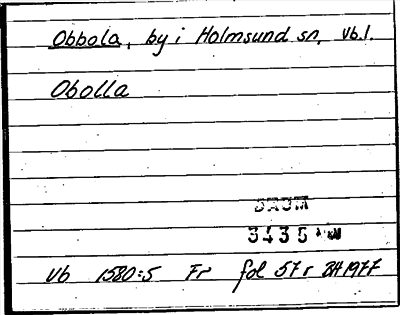 Obbola, by i Holmsund sn, Vb.l.
Obolla
DAUM
3436
Vb 1580:5 Fr fol 57 r BH 1977